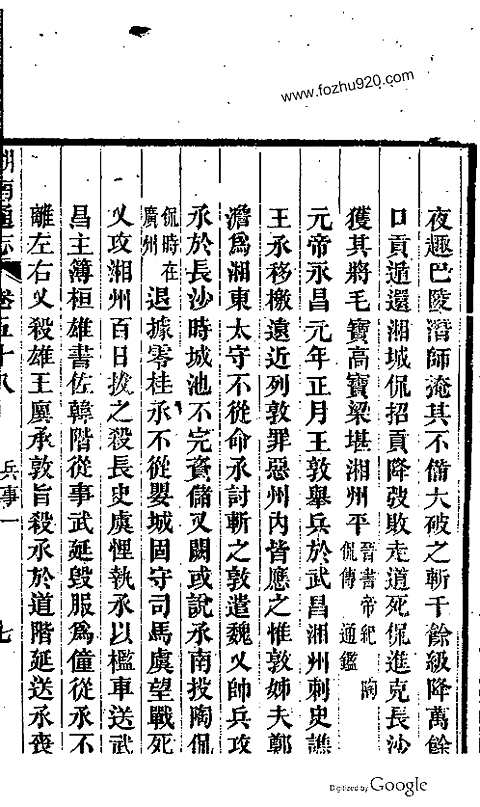 www.fozhu920.com
夜趣巴陵潛師掩其不備大破之斬千餘級降萬餘
口貢遁還湘城侃招貢降弢敗走道死侃進克長沙
獲其將毛寶高寶梁堪湘州平晉書帝紀 陶侃傳 通鑑
元帝永昌元年正月王敦舉兵於武昌湘州刺史譙
王承移檄遠近列敦罪惡州內皆應之惟敦姊夫鄭
澹爲湘東太守不從命承討斬之敦遣魏乂帥兵攻
承於長沙時城池不完資儲又闕或說承南投陶侃
侃時在廣州退據零桂承不從嬰城固守司馬虞望戰死
乂攻湘州百日拔之殺長史虞悝執承以檻車送武
昌主簿桓雄書佐韓階從事武延毀服爲僮從承不
離左右乂殺雄王廙承敦旨殺承於道階延送承喪
湖南通志 卷五十八 兵事一 七
Digitized by Google